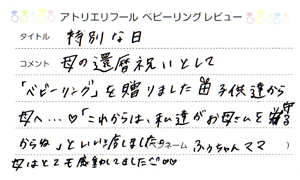 アトリエリフール ベビーリングレビュー
タイトル 特別な日
コメント 母の還暦祝いとして
「ベビーリング」を贈りました 子供達から
母へ…♡「これからは、私達がお母さんを守る
からね」といい渡しました。 ネーム ふぅちゃんママ )
母はとても感動してました♡♡